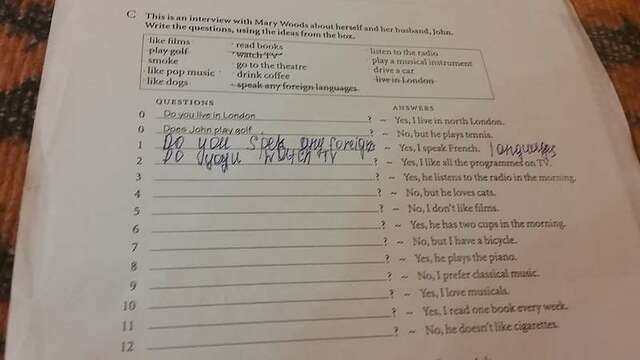 C This is an interview with Mary Woods about herself and her husband, John.
Write the questions, using the ideas from the box.
like films · read books listen to the radio
play golf · watch TV play a musical instrument
smoke go to the theatre drive a car
· like pop music · drink coffee live in London
like dogs · speak any foreign languages
QUESTIONS ANSWERS
0 Do you live in London ? ~ Yes, I live in north London.
0 Does John play golf ? ~ No, but he plays tennis.
1 Do you speak any foreign languages ? ~ Yes, I speak French.
2 Do watch TV ? ~ Yes, I like all the programmes on TV.
3 ? ~ Yes, he listens to the radio in the morning.
4 ? ~ No, but he loves cats.
5 ? ~ No, I don't like films.
6 ? ~ Yes, he has two cups in the morning.
7 ? ~ No, but I have a bicycle.
8 ? ~ Yes, he plays the piano.
9 ? ~ No, I prefer classical music.
10 ? ~ Yes, I love musicals.
11 ? ~ Yes, I read one book every week.
12 ? No, he doesn't like cigarettes.